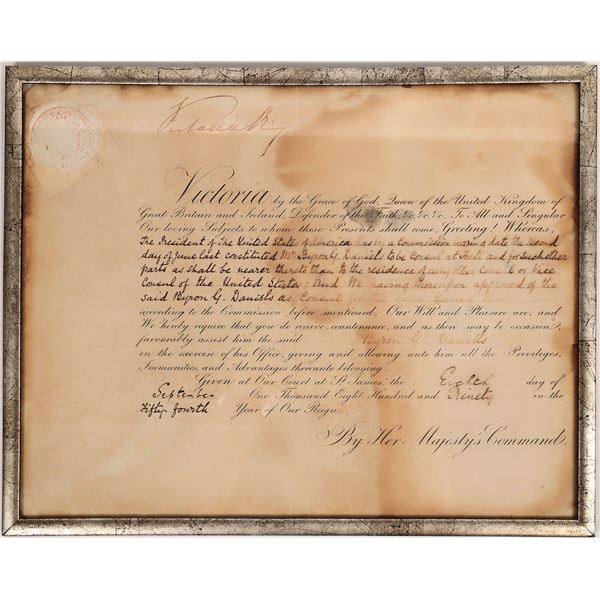 Victoria R
Victoria by the Grace of God, Queen of the United Kingdom of
Great Britain and Ireland, Defender of the Faith, &c, &c, &c, To All and Singular
Our loving Subjects to whom these Presents shall come, Greeting! Whereas,
The President of The United States of America has by a Commission bearing date the second
day of June last constituted Mr Byron G. Daniels to be Consul at Hull and for such other
parts as shall be nearer thereto than to the residence of any other Consul or Vice
Consul of the United States; And We having thereupon approved of the
said Byron G. Daniels as Consul for the said United
according to the Commission before mentioned, Our Will and Pleasure are, and
We hereby require that you do receive, countenance, and as there may be occasion,
favourably assist him the said Byron G. Daniels
in the exercise of his Office, giving and allowing unto him all the Privileges,
Immunities, and Advantages thereunto belonging.
Given at Our Court at St James' the Eighth day of
September One Thousand Eight Hundred and Ninety in the
Fifty-fourth Year of Our Reign.
By Her Majesty's Command.